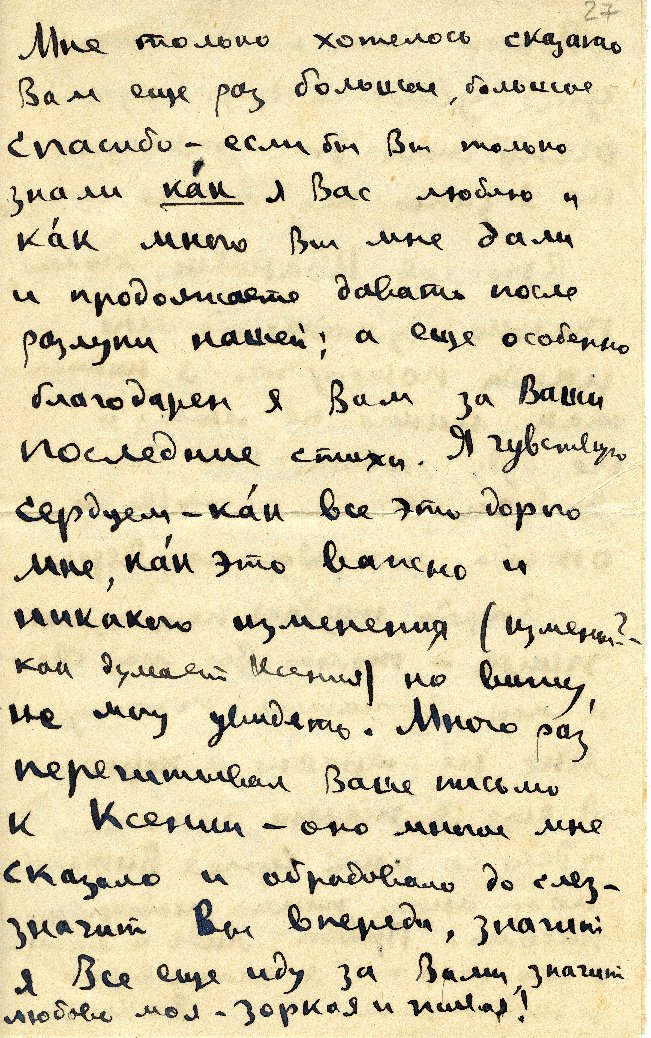 27
Мне только хотелось сказать
Вам еще раз большое, большое
спасибо – если бы Вы только
знали ка́к я Вас люблю и
ка́к много Вы мне дали
и продолжаете давать после
разлуки нашей; а еще особенно
благодарен я Вам за Ваши
последние стихи. Я чувствую
сердцем – ка́к все это дорого
мне, ка́к это важно и
никакого изменения (измены?–
как думает Ксения) не вижу,
не могу увидеть. Много раз
перечитывал Ваше письмо
к Ксении – оно многое мне
сказало и обрадовало до слез –
значит Вы впереди, значит
я все еще иду за Вами, значит
любовь моя – зоркая и !